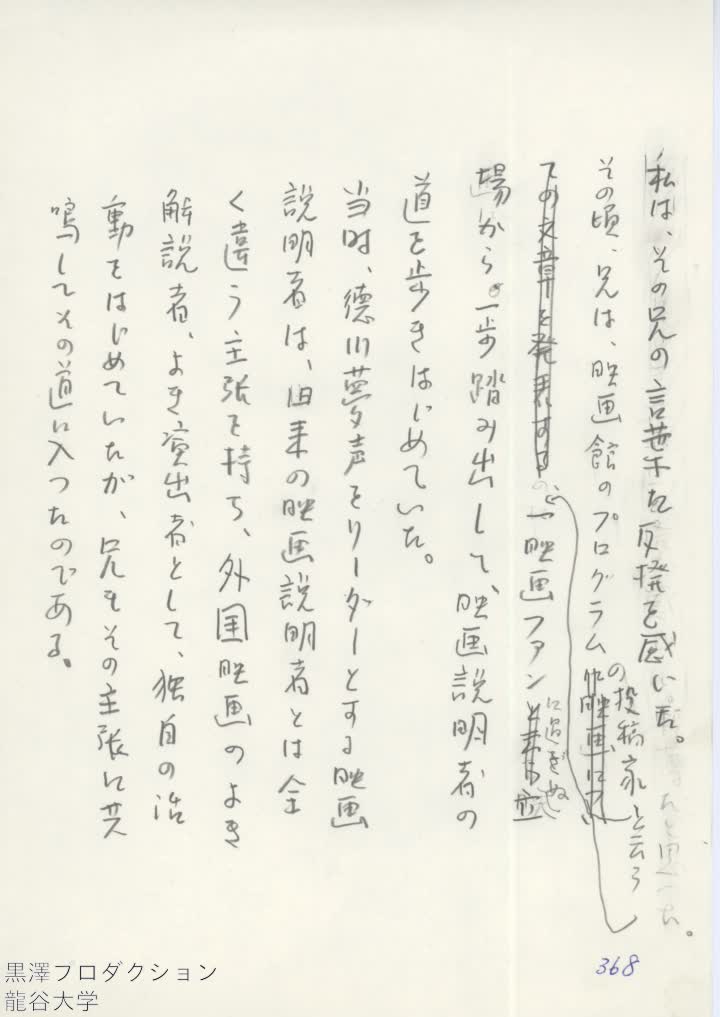 私は、その兄の言葉に反撥を感じた。
その頃、兄は、映画館のプログラムの投稿家と云う
一映画ファンに過ぎぬ立
場から。一歩踏み出して、映画説明者の
道を歩きはじめていた。
当時、徳川夢声をリーダーとする映画
説明者は、旧来の映画説明者とは全
く違う主張を持ち、外国映画のよき
解説者、よき演出者として、独自の活
動をはじめていたが、兄もその主張に共
鳴してその道に入つたのである。
368
黒澤プロダクション
龍谷大学